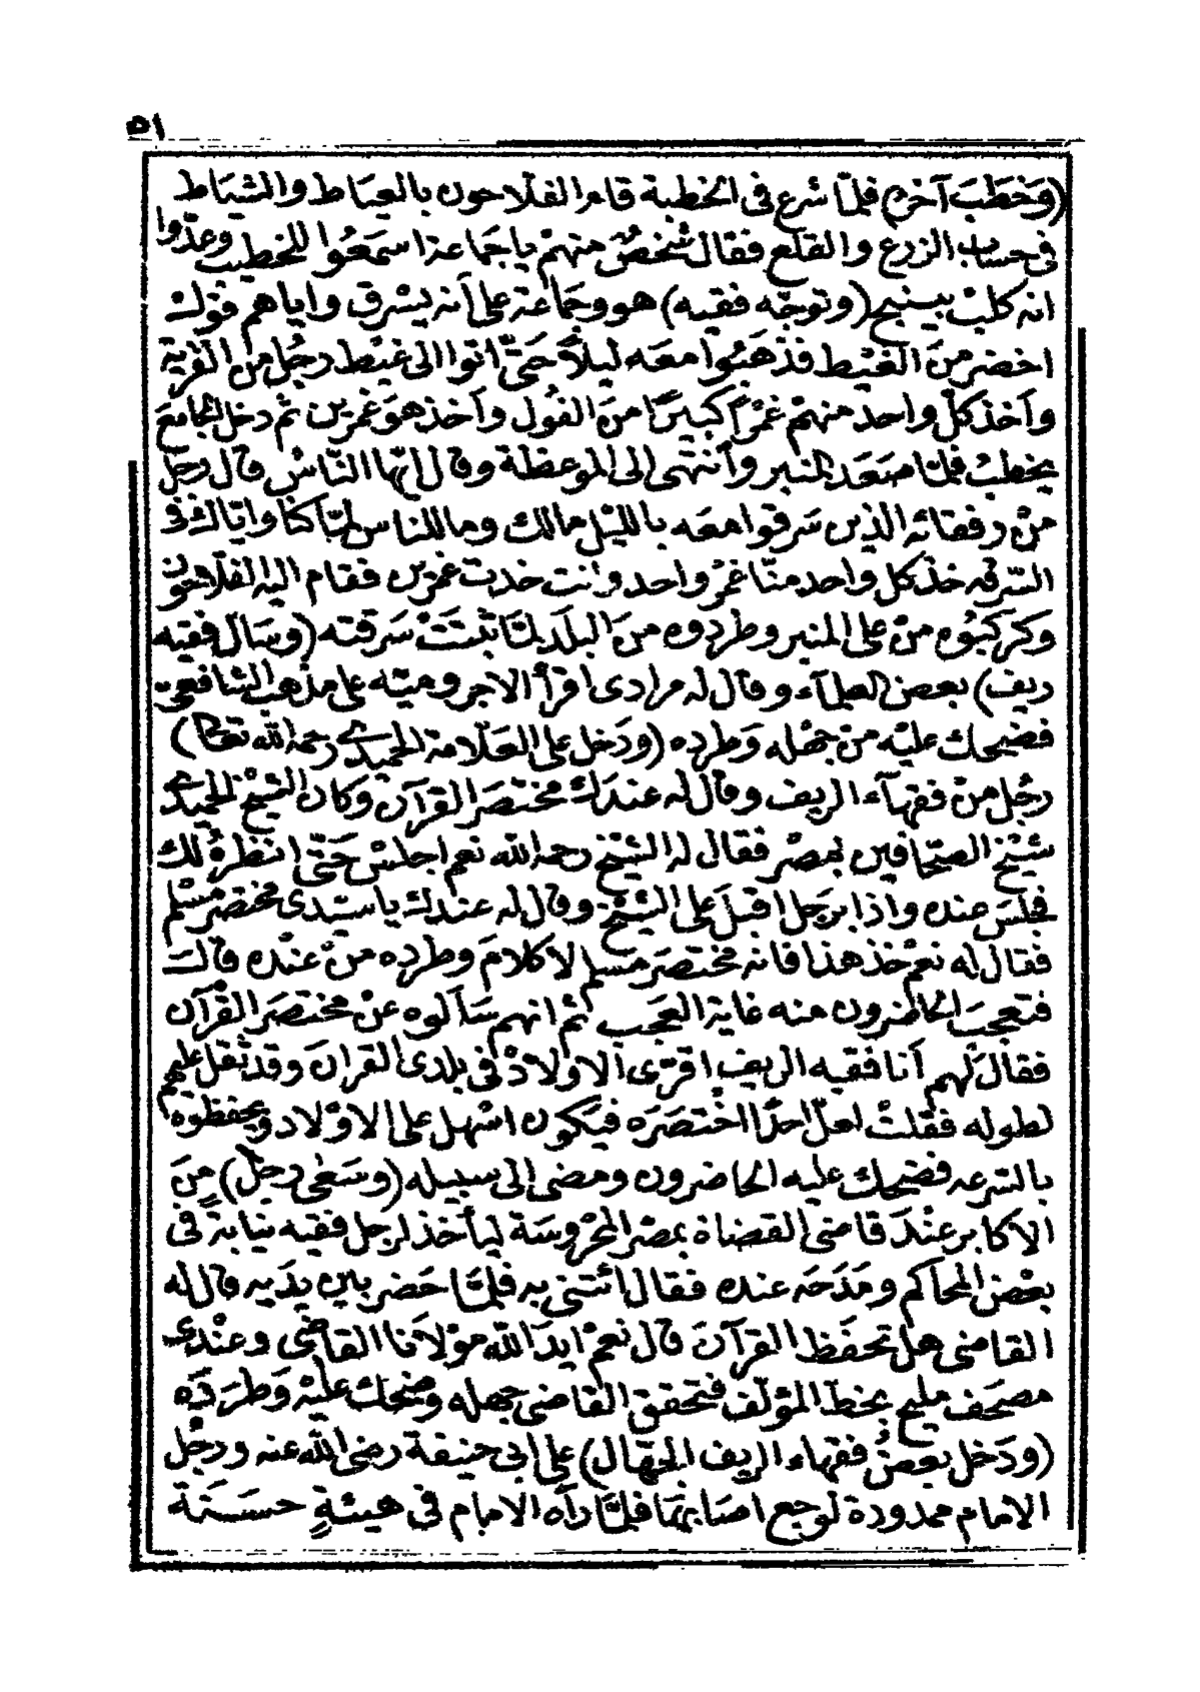 ٥١
(وَخَطَبَ آخر) فلمّا شرع فى الخطبة قامر الفلّاحون بالعيَاط والشيَاط
فى حساب الزرع والقلع فقال شخصٌ منهمْ ياجماعة اسمَعُوا للخطيب وعدّوا
انه كلبْ بينبح (وتوجّه فقيه) هو وجماعة على أنه يسْرق واياهم فولْ
اخضر منَ الغيْط فذهبُوا معَه ليلاً حَتىّ اتوا الى غيْط رجُل من القرْية
وآخذ كلّ واحد منهمْ غمْرًا كبيرًا منَ الفول وآخذ هوَ غمرين ثمّ دخل الجامعَ
يخطبُ فلمّا صعَد المنبر وأنتهى الى الموعظة وقال ايّها النّاسْ قال رجلٌ
منْ رفقائه الذين سَرقوا معَه بالليْل مالك وما للناس لمّا كنّا وايّاك فى
السّرقه خذ كل واحد منّا غمْرْ واحد وانت خدت غمرين فقام اليه الفلّاحون
وكرْكبُوه منْ على المنبر وطردوه منَ البلَد لمّا ثبتَتْ سَرقته (وسَال فقيه
ريف) بعض العلمآء وقال له مرادى اقرأ الاجروميّه على مذْهب الشافعىّ
فضَحك عليْه من جهْله وَطرده (ودَخل على العَلّامة الحميدىّ رحمه الله تعَالى)
رجُل منْ فقهآء الريف وقال له عندَك مختصَر القرآن وكان الشيْخ الحميدىّ
شيْخ الصحّافين بمصْر فقال له الشيْخ رحمه الله نعم اجلسْ حَتّى انظرهُ لك
فجلسَ عنده واذا برَجل اقبلَ على الشيْخ وقال له عندك ياسيّدى مختصر مسْلم
فقال له نعمْ خذ هذا فانه مختصَر مسلم لا كلامَ وطرده منْ عنْده قالَ
فتعجبَ الحاضرون منه غاية العجَب ثم انهم سَآلوه عنْ مختصَر القرْآن
فقالَ لهم آنا فقيه الريف اقرّى الاوْلادْ فى بلدى القرانَ وقد ثقل عليهم
لطوله فقلتْ لعلّ احدًا اخْتصَرَه فيكون اسْهل على الاوْلاد ويحفظوه
بالسّرعه فضحك عليه الحاضرون ومضى الى سبيله (وسَعى رجلٌ) منَ
الاكابر عنْدَ قاضى القضاة بمصْر المحرُوسَة ليأخذ لرجل فقيه نيابة فى
بعْض المحاكم ومَدَحَه عنده فقال ائتنى به فلمّا حَضر بين يدَيه قال له
القاضى هل تحفَظ القرآنَ قال نعمْ ايدَ الله موْلاَنا القاضى وعنْدى
مصحَف مليح بخطّ المؤلّف فتحَقق القاضى جهله وضحك عليْه وَطرَدَه
(ودَخل بعضُ فقهاء الريف الجهّال) على ابى حنيفة رضى الله عنه ورجْل
الامام ممدودة لوجع اصَابهَا فلمّا رآه الامام فى هيئةٍ حسَنة